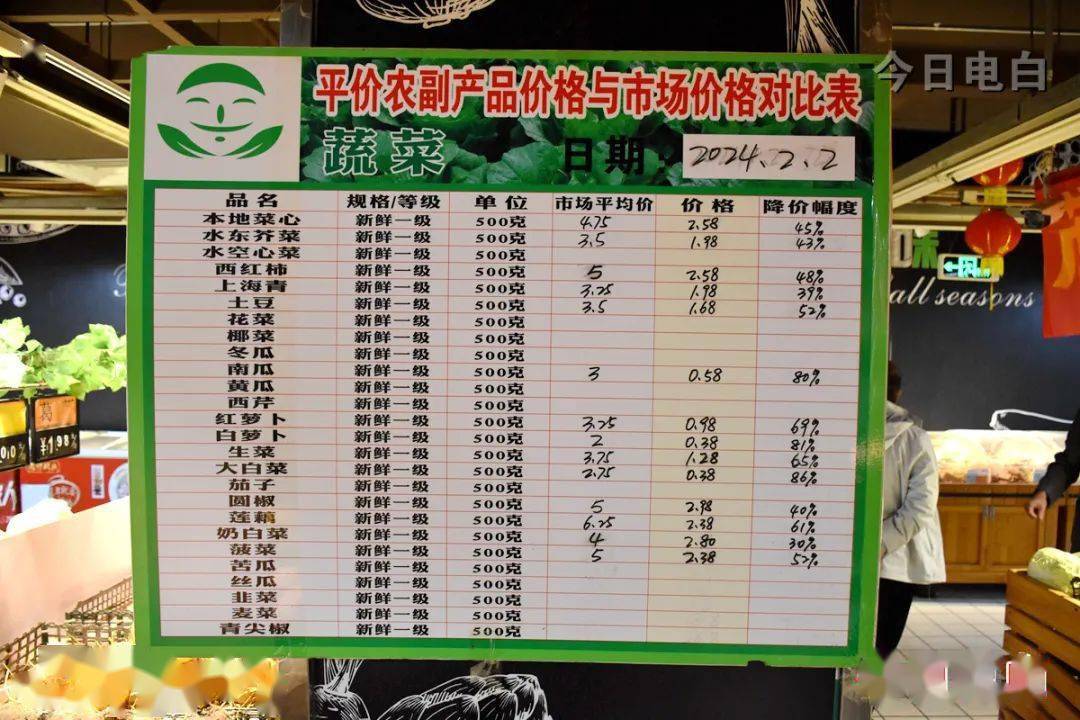 今日电白
平价农副产品价格与市场价格对比表
蔬菜 日期: 2024.2.2
品名 规格/等级 单位 市场平均价 价格 降价幅度
本地菜心 新鲜一级 500克 4.75 2.58 45%
水东芥菜 新鲜一级 500克 3.5 1.98 43%
水空心菜 新鲜一级 500克
西红柿 新鲜一级 500克 5 2.58 48%
上海青 新鲜一级 500克 3.25 1.98 39%
土豆 新鲜一级 500克 3.5 1.68 52%
花菜 新鲜一级 500克
椰菜 新鲜一级 500克
冬瓜 新鲜一级 500克
南瓜 新鲜一级 500克 3 0.58 80%
黄瓜 新鲜一级 500克
西芹 新鲜一级 500克
红萝卜 新鲜一级 500克 3.25 0.98 69%
白萝卜 新鲜一级 500克 2 0.38 81%
生菜 新鲜一级 500克 3.75 1.28 65%
大白菜 新鲜一级 500克 2.75 0.38 86%
茄子 新鲜一级 500克
圆椒 新鲜一级 500克 5 2.98 40%
莲藕 新鲜一级 500克 6.25 2.38 61%
奶白菜 新鲜一级 500克 4 2.80 30%
菠菜 新鲜一级 500克 5 2.38 52%
苦瓜 新鲜一级 500克
丝瓜 新鲜一级 500克
韭菜 新鲜一级 500克
麦菜 新鲜一级 500克
青尖椒 新鲜一级 500克
all seasons
¥1.98